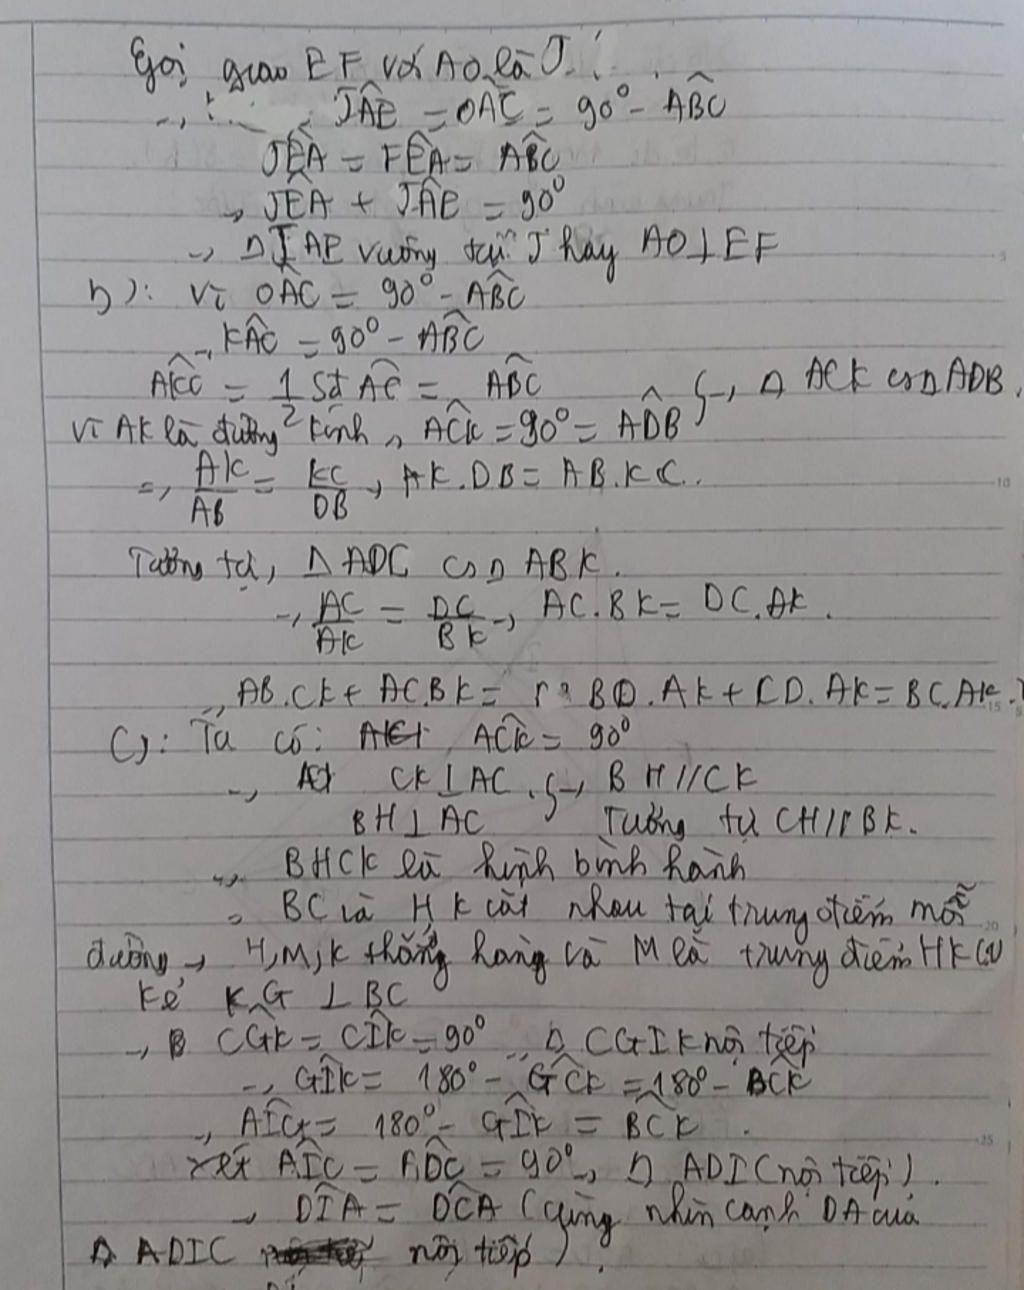 Gọi giao EF với AO là J.
→ JAE = OAC = 90° - ABC
JEA = FEA = ABC
→ JEA + JAE = 90°
→ Δ JAE vuông tại J hay AO ⊥ EF
b): Vì OAC = 90° - ABC
→ KAC = 90° - ABC
AKC = 1/2 sđ AC = ABC } → Δ ACK ∽ Δ ADB.
Vì AK là đường kính → ACK = 90° = ADB
=> AK/AB = KC/DB → AK.DB = AB.KC.
Tương tự, Δ ADC ∽ Δ ABK.
→ AC/AK = DC/BK → AC.BK = DC.AK.
→ AB.CK + AC.BK = BD.AK + CD.AK = BC.AK.
C): Ta có: ACK = 90°
→ CK ⊥ AC } → BH // CK
BH ⊥ AC Tương tự CH // BK.
→ BHCK là hình bình hành
→ BC và HK cắt nhau tại trung điểm mỗi
đường → H, M, K thẳng hàng và M là trung điểm HK (1)
Kẻ KG ⊥ BC
→ CGK = CIK = 90° → CGIK nội tiếp
→ GIK = 180° - GCK = 180° - BCK
→ AIG = 180° - GIK = BCK.
Xét AIC = ADC = 90° → ADIC nội tiếp).
→ DIA = DCA (cùng nhìn cạnh DA của
ADIC nội tiếp).